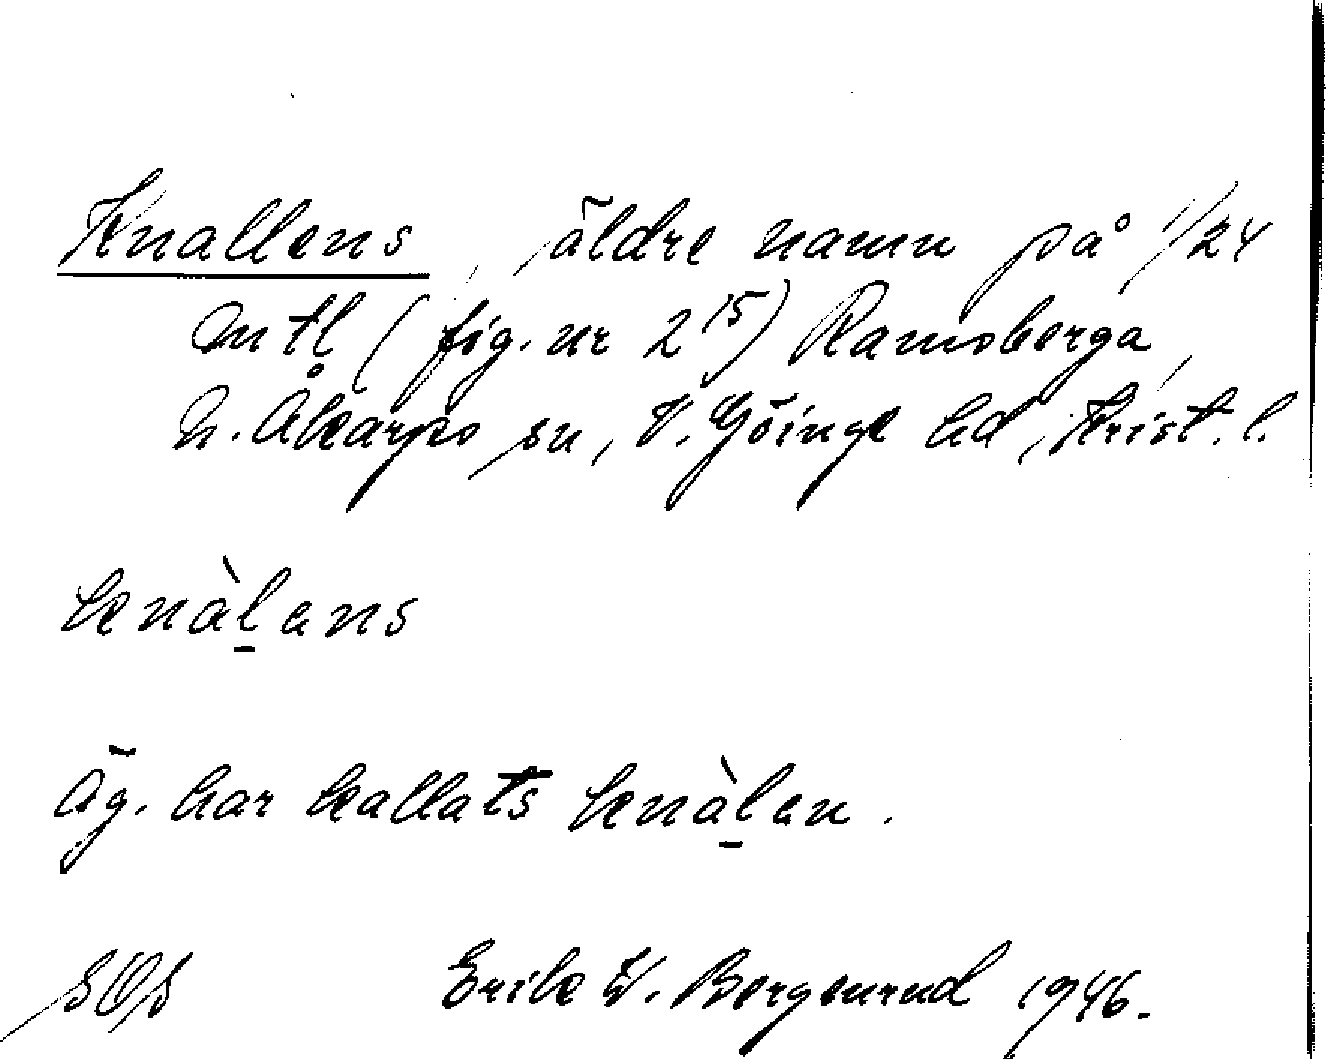 Knallens, äldre namn på 1/24
mtl (fig. nr 2¹⁵) Ramsberga,
N. Åkarps sn, V. Göinge hd, Krist. l.
knàl̲ans
Äg. har kallats knàl̲an.
SOS Erik W. Bergenrud 1946.